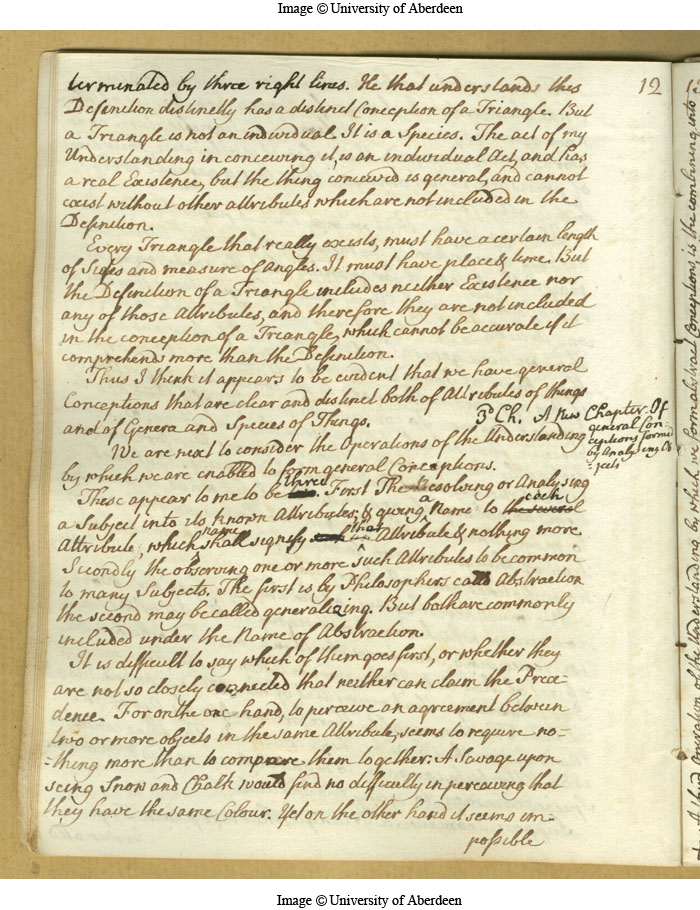 Image © University of Aberdeen
12
terminated by three right lines. He that understands this
Definition distinctly has a distinct Conception of a Triangle. But
a Triangle is not an individual. It is a Species. The act of my
Understanding in conceiving it, is an individual Act, and has
a real Existence, but the thing conceived is general, and cannot
exist without other attributes which are not included in the
Definition.
Every Triangle that really exists, must have a certain length
of Sides and measure of Angles. It must have place & time. But
the Definition of a Triangle includes neither Existence nor
any of those Attributes, and therefore they are not included
in the conception of a Triangle, which cannot be accurate if it
comprehends more than the Definition.
Thus I think it appears to be evident that we have general
Conceptions that are clear and distinct both of Attributes of things
and of Genera and Species of Things.
3d Ch. A New Chapter. Of
general Con-
ceptions formd
by Analysing Ob
-jects
We are next to consider the Operations of the Understanding
by which we are enabled to form general Conceptions.
These appear to me to be three. First The Resolving or Analysing
a Subject into its known Attributes; & giving a Name to each
Attribute, which name shall signify that Attribute & nothing more.
Secondly the observing one or more such Attributes to be common
to many Subjects. The first is by Philosophers calld Abstraction
the second may be called generalizing. But both are commonly
included under the Name of Abstraction.
It is difficult to say which of them goes first, or whether they
are not so closely connected that neither can claim the Prece-
dence. For on the one hand, to perceive an agreement between
two or more objects in the same Attribute, seems to require no-
-thing more than to compare them together. A Savage upon
seing Snow and Chalk would find no difficulty in perceiving that
they have the same Colour. Yet on the other hand it seems im-
possible
of the understanding by which we form abstract Conceptions is the combining into
Image © University of Aberdeen